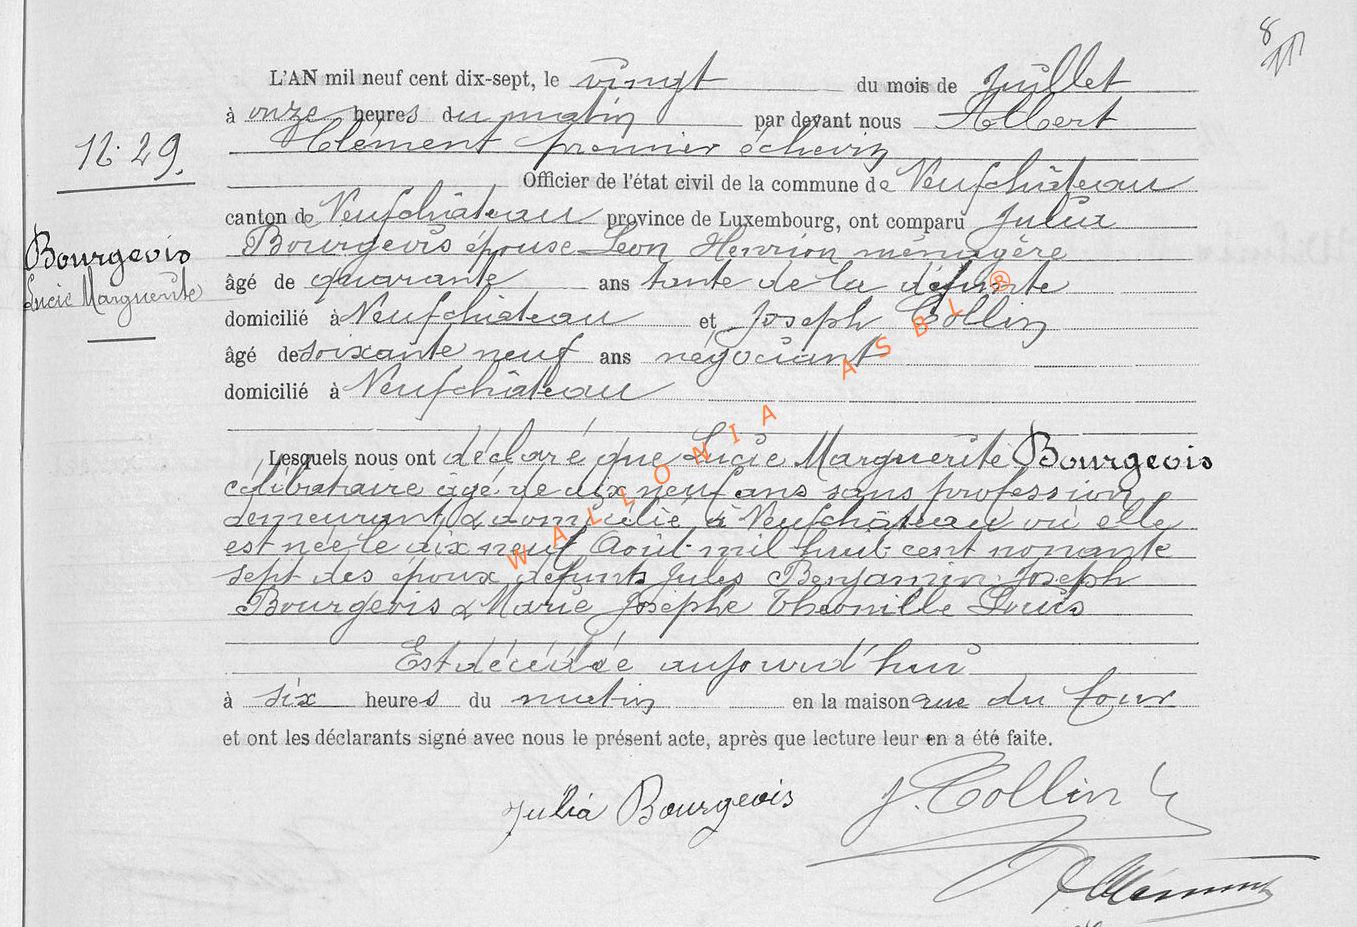 8
L'AN mil neuf cent dix-sept, le vingt du mois de Juillet
à onze heures du matin par devant nous Albert
Clément premier échevin
N: 29.
Officier de l'état civil de la commune de Neufchâteau
canton de Neufchâteau province de Luxembourg, ont comparu Julia
Bourgeois épouse Leon Henrion ménagère
Bourgeois
Lucie Marguerite
âgé de quarante ans tante de la défunte
domicilié à Neufchâteau et Joseph Collin
âgé de soixante neuf ans négociant
domicilié à Neufchâteau
Lesquels nous ont déclaré que Lucie Marguerite Bourgeois
célibataire âgé de dix neuf ans sans profession
demeurant & domicilié à Neufchâteau où elle
est née le dix neuf Août mil huit cent nonante
sept des époux défunts Jules Benjamin Joseph
Bourgeois & Marie Josèphe Théonille Louis
Est décédée aujourd'hui
à six heures du matin en la maison rue du Four
et ont les déclarants signé avec nous le présent acte, après que lecture leur en a été faite.
Julia Bourgeois J. Collin
Clément
WALLONIA ASBL ®